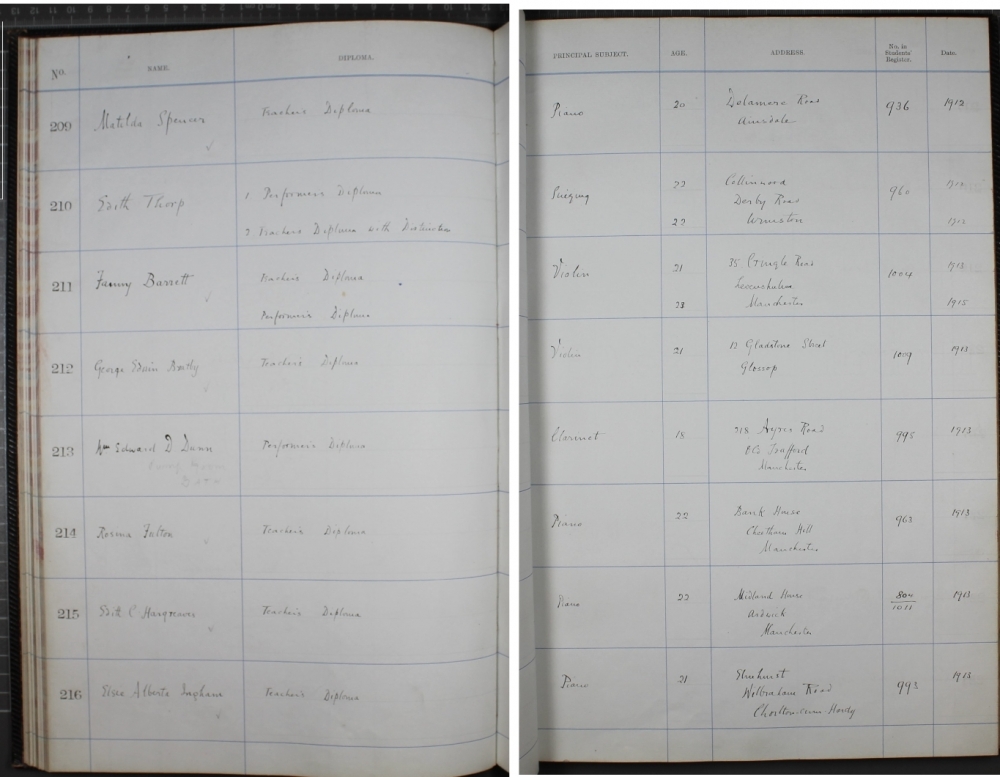 No. NAME. DIPLOMA.
209 Matilda Spencer Teacher's Diploma
210 Edith Thorp 1. Performer's Diploma
2. Teacher's Diploma with Distinction
211 Fanny Barrett Teacher's Diploma
Performer's Diploma
212 George Edwin Teacher's Diploma
213 Wm Edward D Dunn Performer's Diploma
214 Rosina Fulton Teacher's Diploma
215 Edith C Hargreaves Teacher's Diploma
216 Elsie Alberta Ingham Teacher's Diploma
PRINCIPAL SUBJECT. AGE. ADDRESS. No. in Students' Register. Date.
Piano 20 Delamere Road 936 1912
Ainsdale
Singing 22 Collinwood 960
Derby Road
22 Urmston
Violin 21 35 Cringle Road 1004 1913
Levenshulme
23 Manchester 1915
Violin 21 12 Gladstone Street 1009 1913
Glossop
Clarinet 18 Ayres Road 995 1913
Old Trafford
Manchester
Piano 22 Bank House 963 1913
Cheetham Hill
Manchester
Piano 22 Midland House 804 1913
Ardwick 1011
Manchester
Piano 21 Elmhurst 993 1913
Wilbraham Road
Chorlton-cum-Hardy